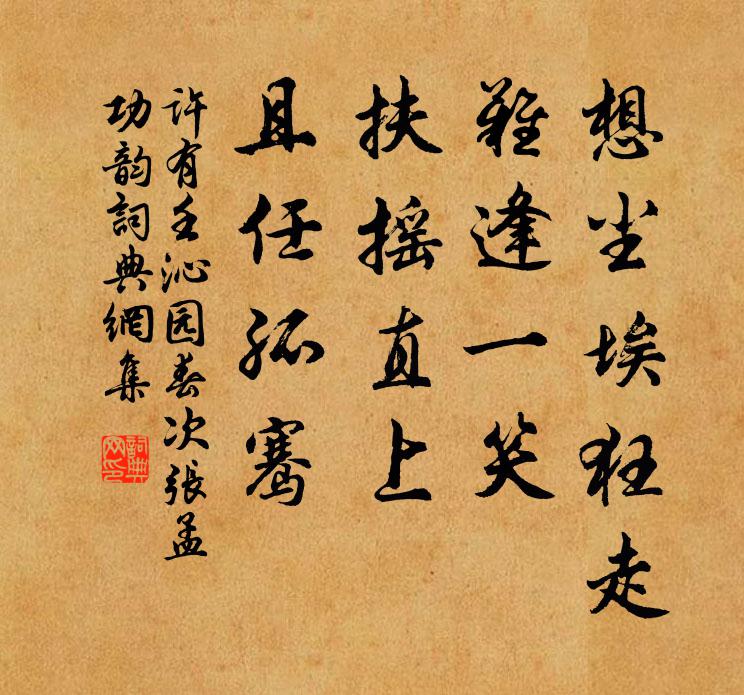 想尘埃狂走
難逢一笑
扶摇直上
且任孤骞
许有壬沁园春次張孟
功韵詞典網集
詞典网印